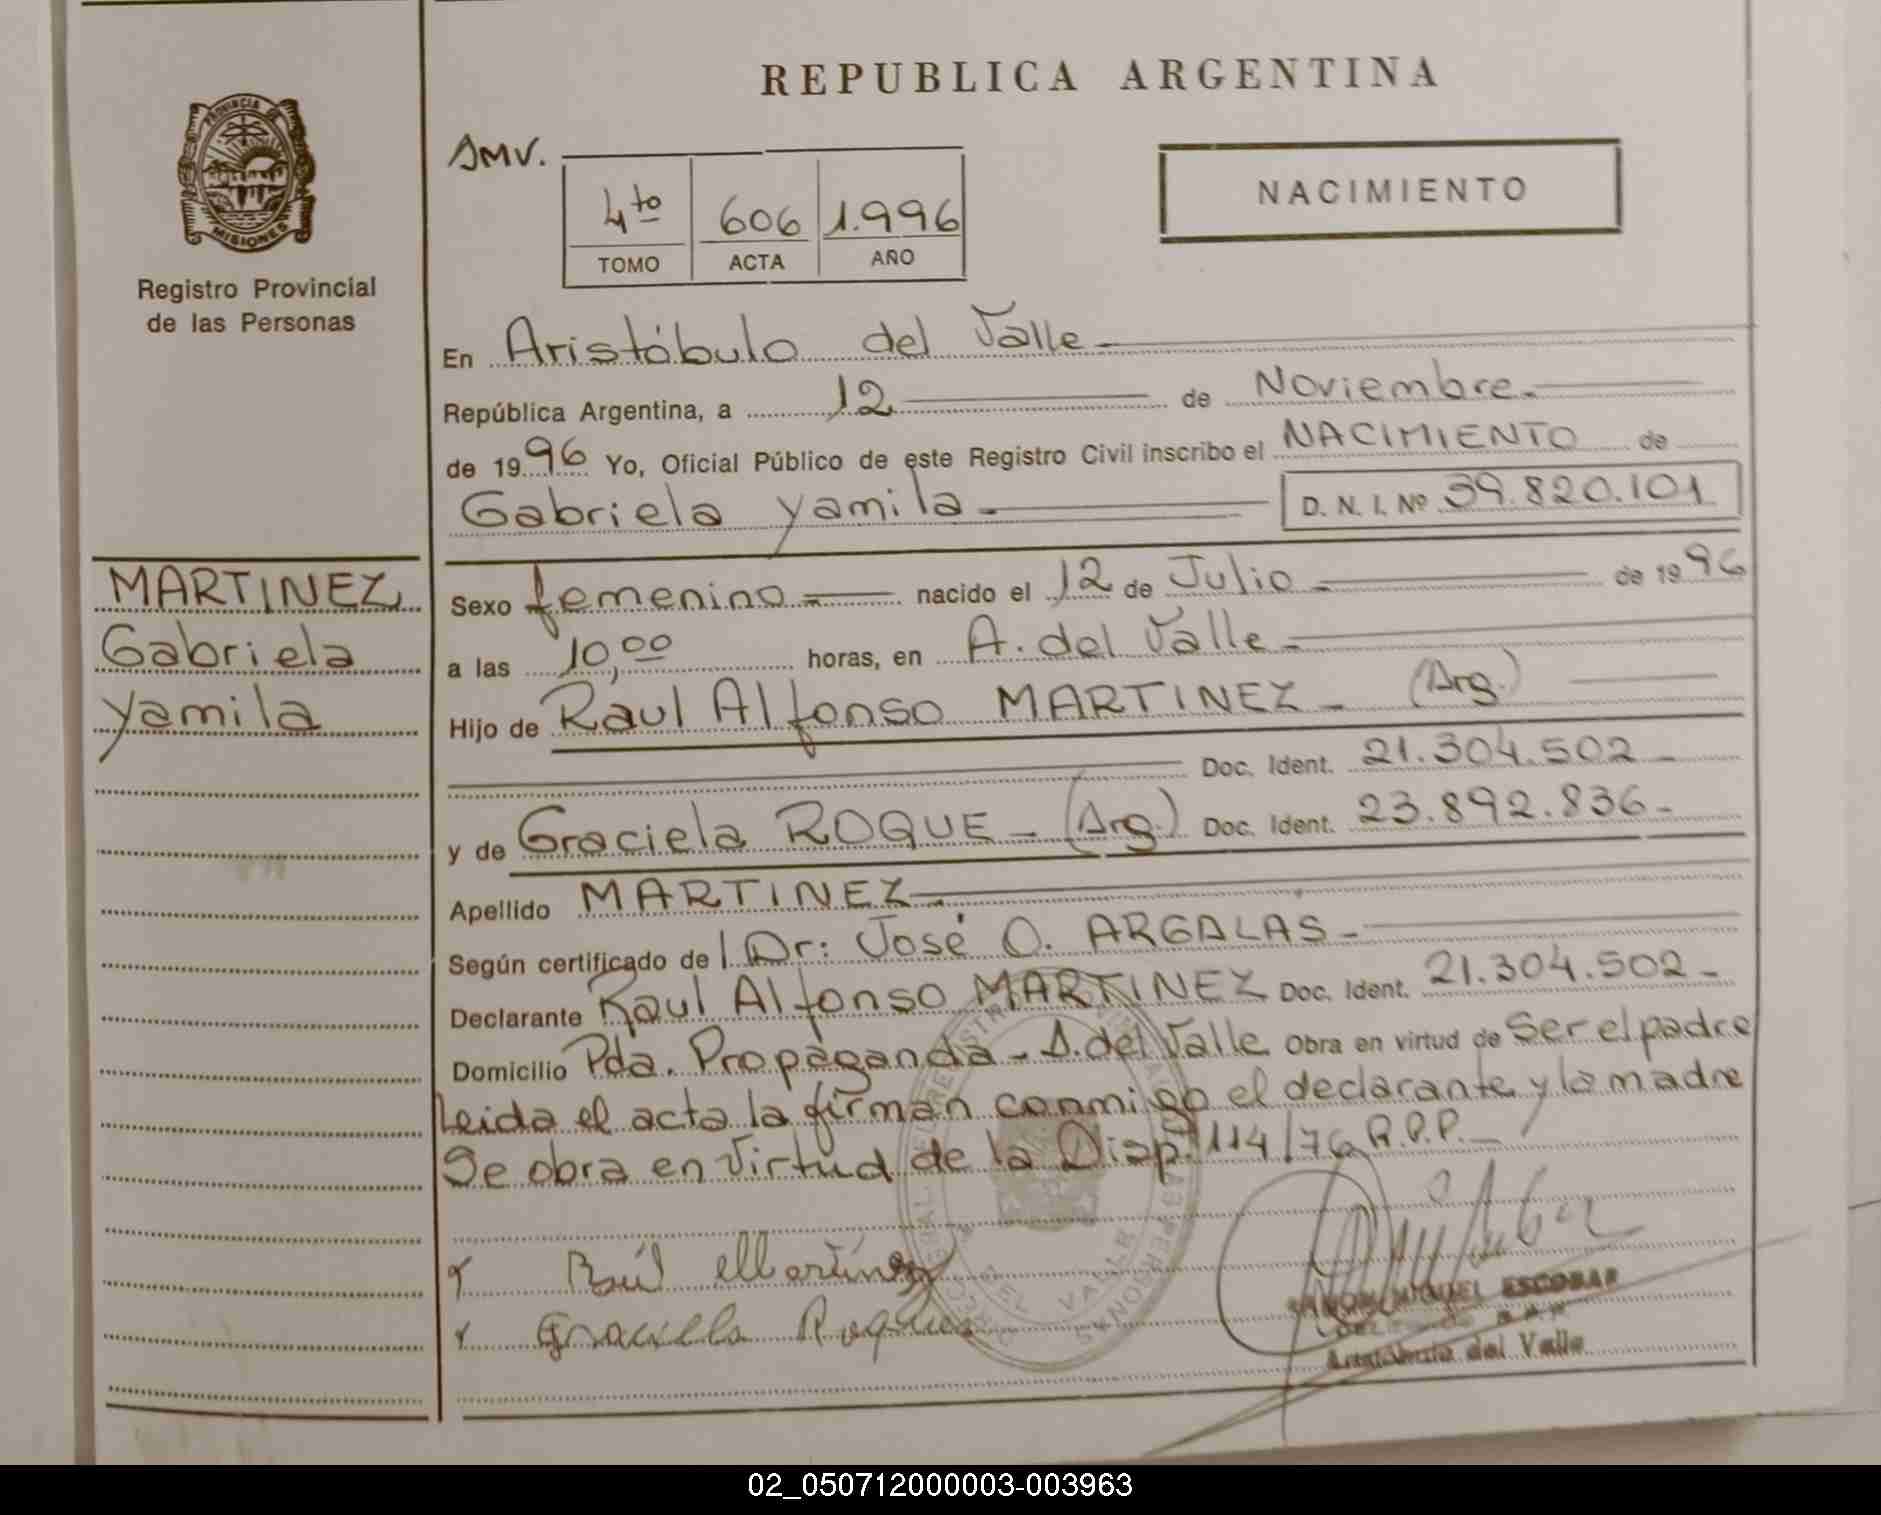 REPUBLICA ARGENTINA
PROVINCIA DE
MISIONES
Registro Provincial
de las Personas
AMV.
4to 606 1.996
TOMO ACTA AÑO
NACIMIENTO
En Aristóbulo del Valle
República Argentina, a 12 de Noviembre.
de 1996 Yo, Oficial Público de este Registro Civil inscribo el NACIMIENTO de
Gabriela Yamila D. N. I. Nº 39.820.101
MARTINEZ
Gabriela
Yamila
Sexo femenino nacido el 12 de Julio de 1996
a las 10,00 horas, en A. del Valle
Hijo de Raul Alfonso MARTINEZ (Arg.)
Doc. Ident. 21.304.502
y de Graciela ROQUE (Arg.) Doc. Ident. 23.892.836
Apellido MARTINEZ
Según certificado de Dr: José O. ARGALAS
Declarante Raul Alfonso MARTINEZ Doc. Ident. 21.304.502
Domicilio Pda. Propaganda - A. del Valle Obra en virtud de Ser el padre
Leida el acta la firman conmigo el declarante y la madre
Se obra en virtud de la Disp. 114/76 R.P.P.
Raúl Martínez
Graciela
DEL VALLE
ESCOBAR
Aristóbulo del Valle
02_050712000003-003963